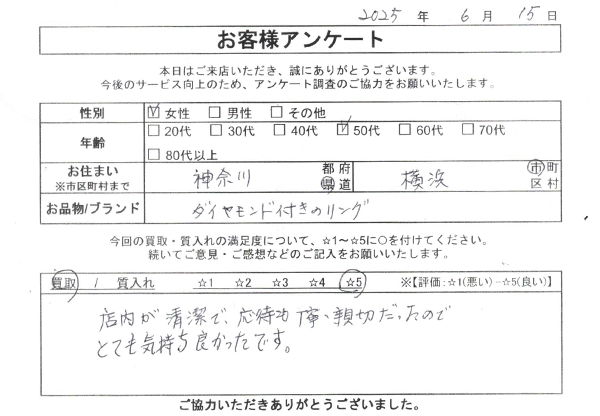 2025 年 6 月 15 日
お客様アンケート
本日はご来店いただき、誠にありがとうございます。
今後のサービス向上のため、アンケート調査のご協力をお願いいたします。
性別 ☑ 女性 □ 男性 □ その他
年齢 □ 20代 □ 30代 □ 40代 ☑ 50代 □ 60代 □ 70代
□ 80代以上
お住まい ※市区町村まで 神奈川 都府県道 横浜 市町区村
お品物/ブランド ダイヤモンド付きのリング
今回の買取・質入れの満足度について、☆1~☆5に○を付けてください。
続いてご意見・ご感想などのご記入をお願いいたします。
買取 / 質入れ ☆1 ☆2 ☆3 ☆4 ☆5 ※【評価:☆1(悪い)-☆5(良い)】
店内が清潔で、応待も丁寧、親切だったので
とても気持ち良かったです。
ご協力いただきありがとうございました。